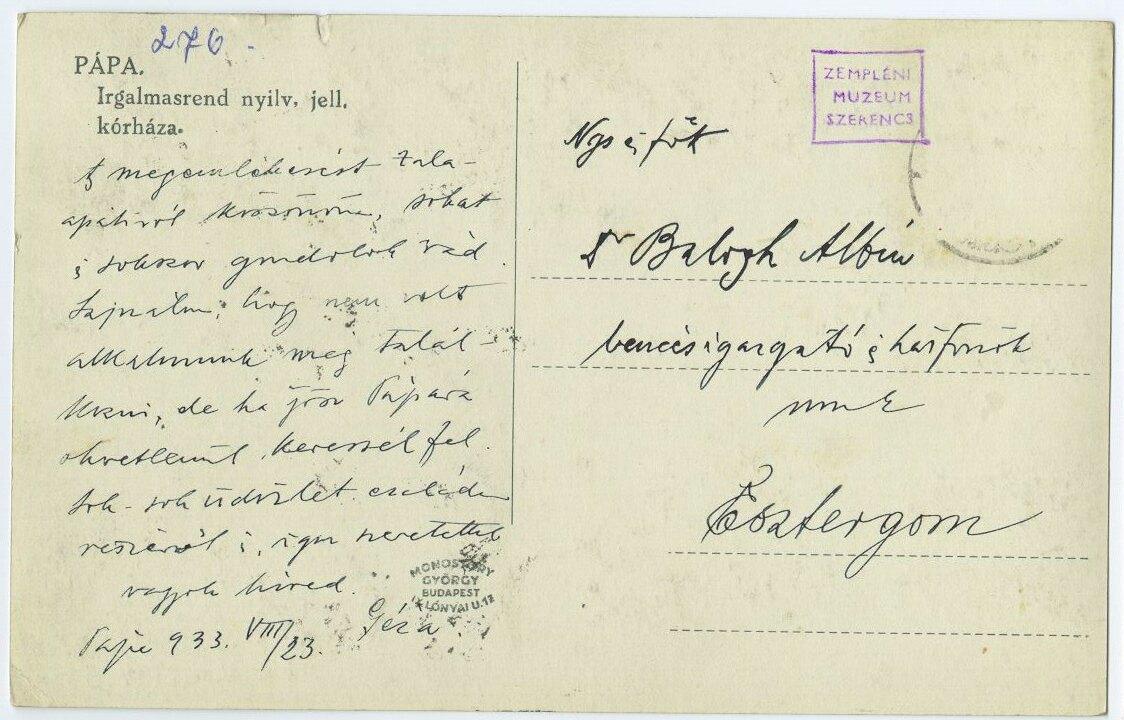 276.
PÁPA.
Irgalmasrend nyilv. jell.
kórháza.
A megemlékezést Zala-
apátiról köszönöm, sokat
s sokszor gondolok rád.
Sajnálom, hogy nem volt
alkalmunk még talál-
kozni, de ha jösz Pápára
okvetlenül keressél fel.
Sok-sok üdvözlet családom
részéről is, igen szeretettel
vagyok híved
Géza
Pápa 933. VIII/23.
MONOSTORY
GYÖRGY
BUDAPEST
LÓNYAI U. 12
ZEMPLÉNI
MUZEUM
SZERENCS
Ngs és főt
Dr Balogh Albin
bencés igazgató s házfőnök
úrnak
Esztergom